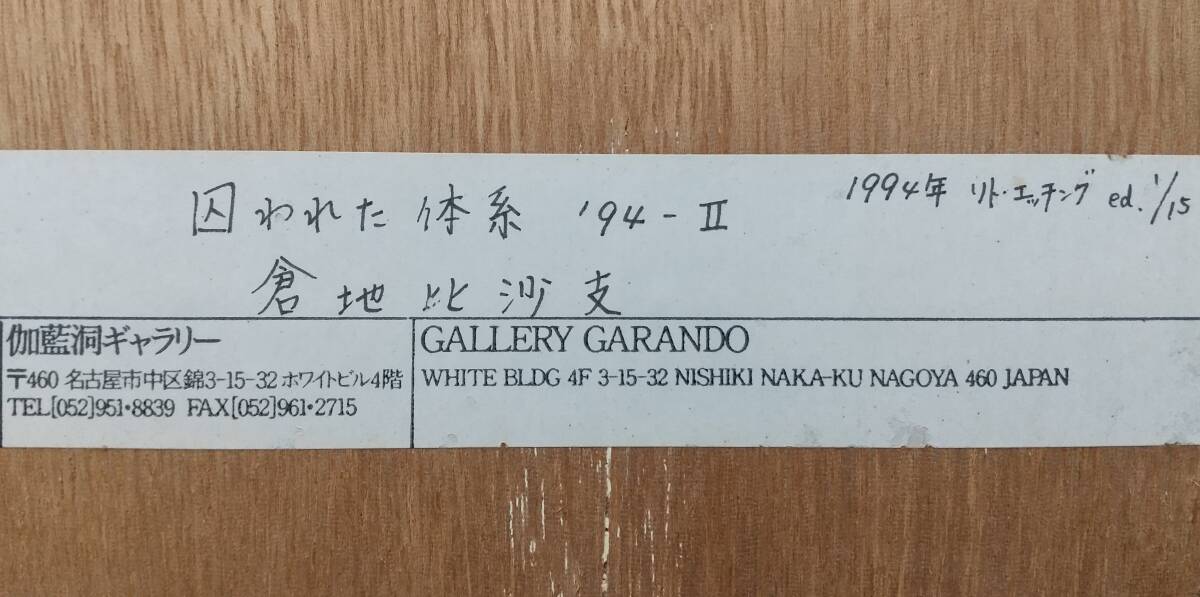 囚われた体系 '94-Ⅱ
1994年 リト・エッチング ed. 1/15
倉地比沙支
伽藍洞ギャラリー
〒460 名古屋市中区錦3-15-32 ホワイトビル4階
TEL[052]951・8839 FAX[052]961・2715
GALLERY GARANDO
WHITE BLDG 4F 3-15-32 NISHIKI NAKA-KU NAGOYA 460 JAPAN